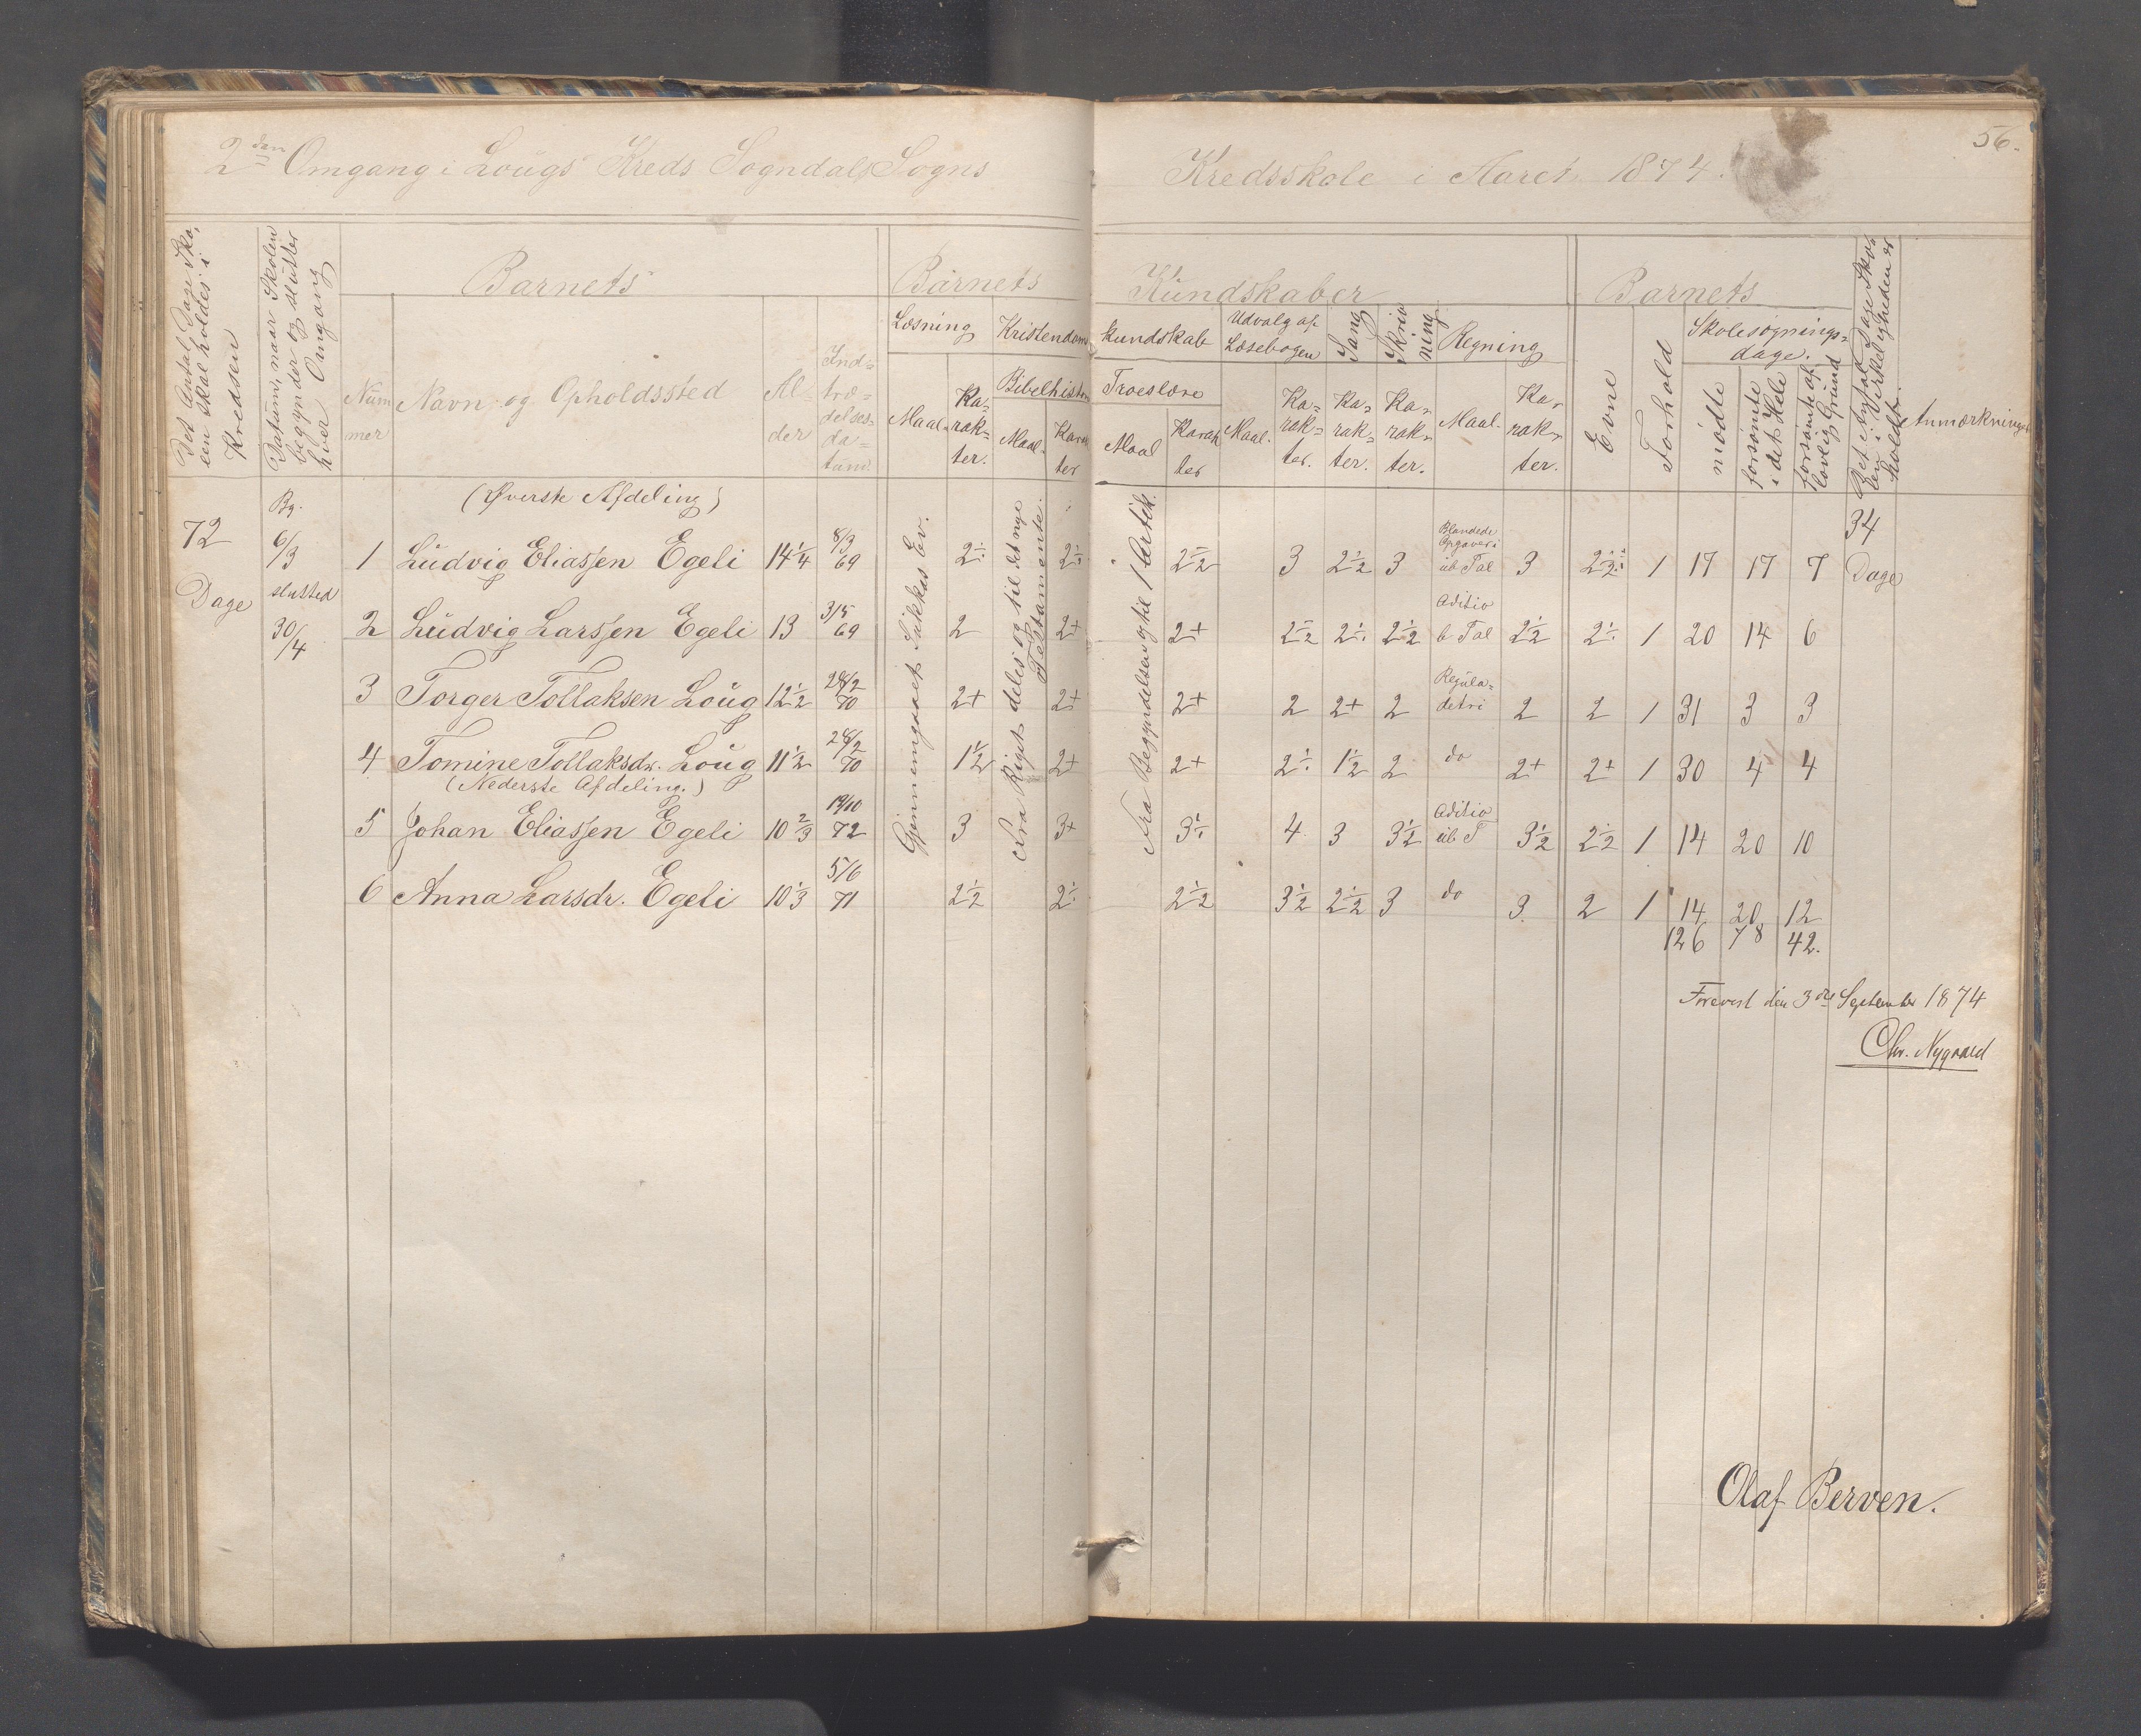 56.
2den Omgang i Lougs Kreds Sogndals Sogns Kredsskole i Aaret 1874.
Det Antal Dage Skolen skal holdes i Kredsen
Datum, naar Skolen begynder og slutter hver Omgang
Barnets
Nummer
Navn og Opholdssted
Alder
Indtrædelsesdatum
Barnets Kundskaber
Læsning
Maal
Karakter.
Kristendomskundskab
Bibelhistorie
Maal.
Karakter
Troeslære
Maal
Karakter
Udvalg af Læsebogen
Maal.
Karakter.
Sang
Karakter.
Skrivning
Karakter.
Regning
Maal.
Karakter.
Barnets
Evne
Forhold
Skolesøgningsdage.
mødte
forsømte i det Hele
forsømte af lovlig Grund
Det Antal Dage Skolen i Virkeligheden er holdt.
Anmærkninger
72 Dage
Bg. 6/3 slutted 30/4
(Øverste Afdeling)
Gjennemgaaet Lukkas Ev.
Fra Rigets deles og til det nye Testamente.
Fra Begyndelsen og til 1 Artik.
34 Dage
1 Ludvig Eliassen Egeli 14 1/4 8/3 69 2÷ 2÷ 2 1/2 3 2 1/2 3 Blandede Opgaver i ub Tal 3 2 1/2 1 17 17 7
2 Ludvig Larssen Egeli 13 3/5 69 2 2+ 2+ 2 1/2 2÷ 2 1/2 Aditio b Tal 2 1/2 2÷ 1 20 14 6
3 Torger Tollaksen Loug 12 1/2 28/2 70 2+ 2+ 2+ 2 2+ 2 Reguladetri 2 2 1 31 3 3
4 Tomine Tollaksdr. Loug 11 1/2 28/2 70 1 1/2 2+ 2+ 2÷ 1 1/2 2 do 2+ 2+ 1 30 4 4
(Nederste Afdeling.)
5 Johan Eliassen Egeli 10 2/3 19/10 72 3 3+ 3÷ 4 3 3 1/2 Aditio ub T 3 1/2 2 1/2 1 14 20 10
6 Anna Larsdr. Egeli 10 1/3 5/6 71 2 1/2 2÷ 2 1/2 3 1/2 2 1/2 3 do 3 2 1 14 20 12
126 78 42.
Forevist den 3die September 1874
Chr. Nygaard
Olaf Berven.